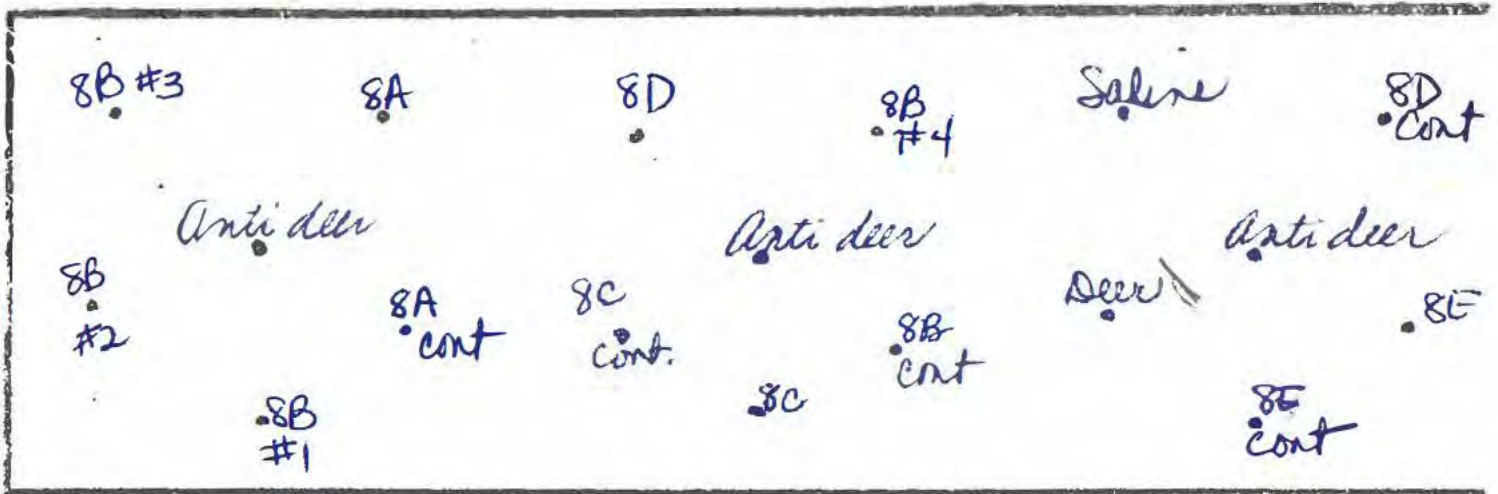 8B #3
8A
8D
8B
#4
Saline
8D
Cont
Anti deer
Anti deer
Anti deer
8B
#2
8A
cont
8C
Cont.
8B
cont
Deer
8E
8B
#1
8C
8E
cont